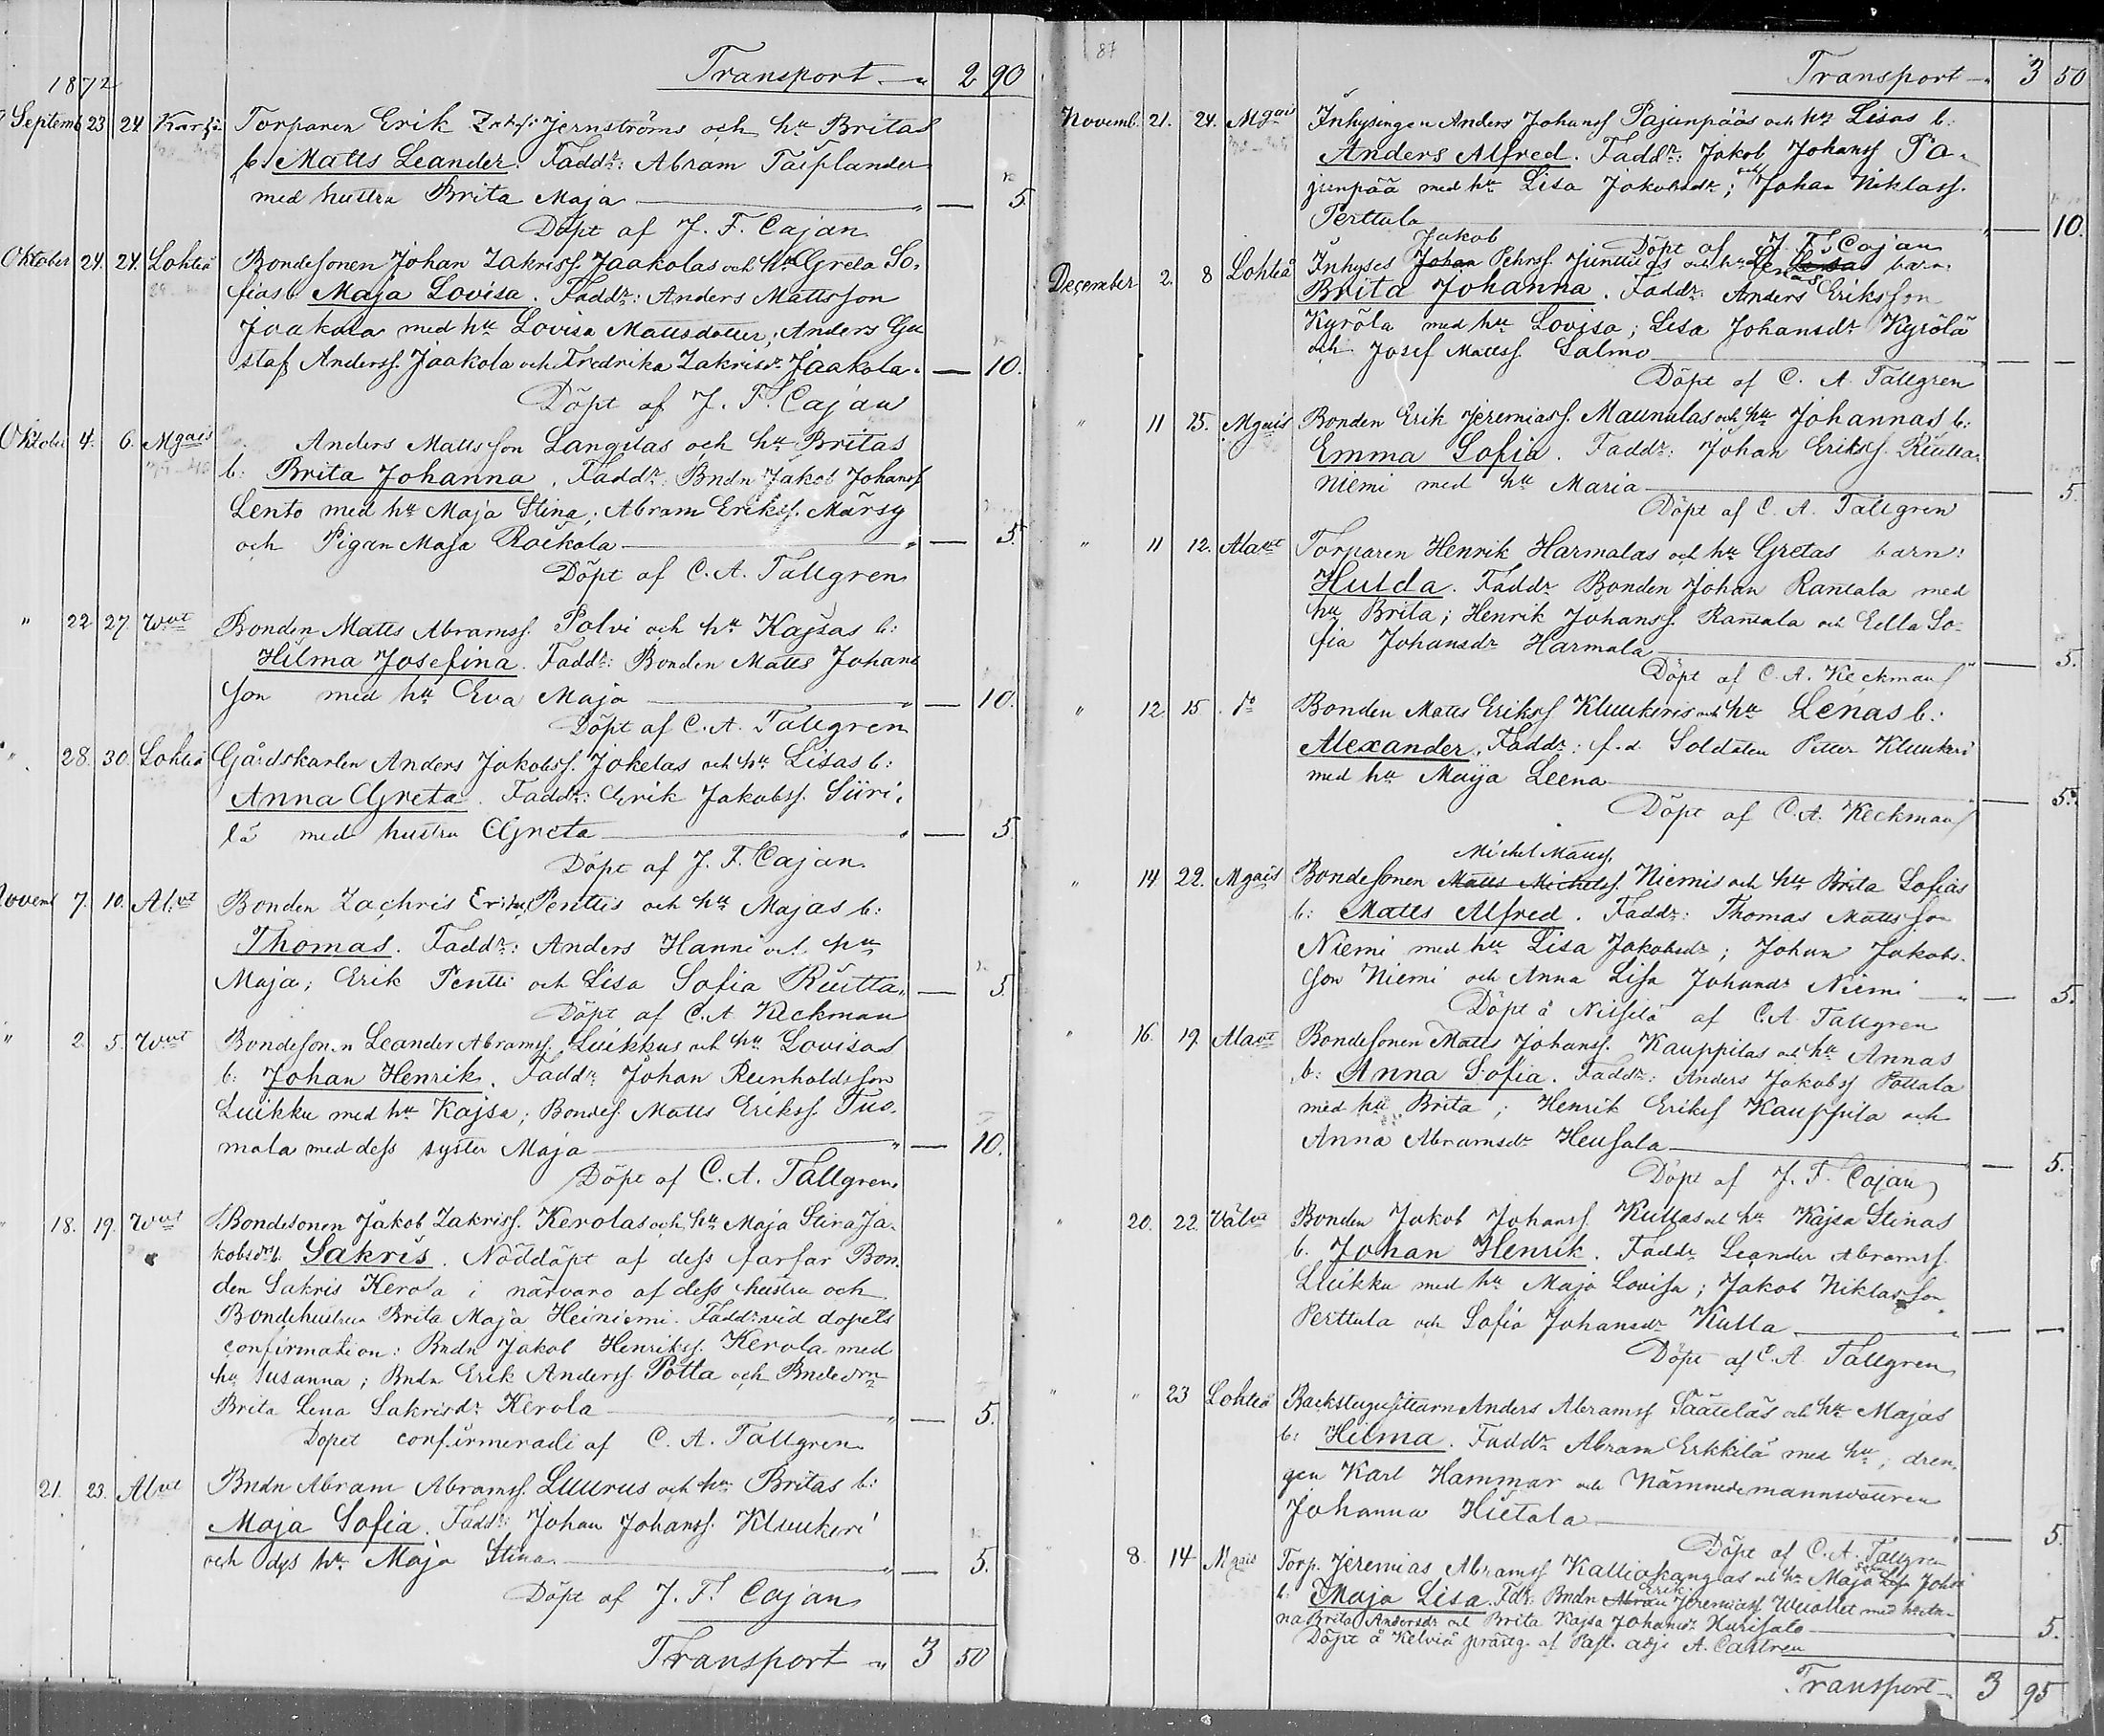 Transport 2 90
1872
Septemb 23 24 Torparen Erik Jernströms och hu Britas
b: Matts Leander. Faddr: Abram Taiplander
med hustru Brita Maja — 5
Döpt af J. F. Cajan
Oktober 24. 24. Lohteå Bondesonen Johan Zakriss. Jaakolas och hu Greta So-
fias b. Maja Lovisa. Faddr: Anders Mattsson
Jaakola med hu Lovisa Mattsdotter; Anders Gu
staf Anderss. Jaakola och Fredrika Zakrisdr Jaakola. — 10.
Döpt af J. F. Cajan
Oktober 4. 6. Mgais Anders Mattsson Langilas och hu Britas
b: Brita Johanna. Faddr: Bndn Jakob Johanss
Lento med hu Maja Stina; Abram Erikss. Märsy
och Pigan Maja — 5.
Döpt af C. A. Tallgren
" 22 27 Wvt Bonden Matts Abramss. Polvi och hu Kajsas b:
Hilma Josefina. Faddr: Bonden Matts Johans
son med hu Eva Maja — 10.
Döpt af C. A. Tallgren
" 28. 30. Lohteå Gårdskarlen Anders Jakobss. Jokelas och hu Lisas b:
Anna Greta. Faddr: Erik Jakobss. Siiri-
lä med hustru Greta — 5.
Döpt af J. F. Cajan
Novemb 7. 10. Al.vt Bonden Zachris Penttis och hu Majas b:
Thomas. Faddr: Anders Hanni och hu
Maja; Erik Pentti och Lisa Sofia Riutta. — 5.
Döpt af C. A. Keckman
" 2. 5. Wvt Bondesonen Leander Abramss. Luikkus och hu Lovisas
b: Johan Henrik. Faddr Johan Reinholdsson
Luikku med hu Kajsa; Bondes. Matts Erikss. Tuo-
mala med dess syster Maja — 10.
Döpt af C. A. Tallgren
18. 19. Wvt Bondesonen Jakob Zakriss. Kerolas och hu Maja Stina Ja-
kobsdr b. Sakris. Nöddöpt af dess farfar Bon-
den Sakris Kerola i närvaro af dess hustru och
Bondehustrun Brita Maja Heiniemi. Faddr vid dopets
confirmation: Bndn Jakob Henrikss. Kerola med
hu Susanna; Bndn Erik Anderss. Potta och Bndedrn
Brita Lena Sakrisdr Kerola — 5.
Dopet confirmeradt af C. A. Tallgren
21. 23. Alvt Bndn Abram Abramss. Luurus och hu Britas b:
Maja Sofia. Faddr: Johan Johanss. Kluukeri
och dess hu Maja Stina. — 5.
Döpt af J. F. Cajan
Transport 3 50
87
Transport 3 50
Novemb. 21. 24. Mgais Inhysingen Anders Johanss Pajunpääs och hu Lisas b:
Anders Alfred. Faddr: Jakob Johanss Pa-
junpää med hu Lisa Jakobsdr; och Johan Niklass.
Perttula — 10.
Döpt af J. F. Cajan
Jakob
December 2. 8 Lohteå Inhyses Johan Pehrss. Junttilas och hu Lenas barn:
Brita Johanna. Faddr: Anders Eriksson
Kyrölä med hu Lovisa; Lisa Johansdr Kyrölä
och Josef Mattss. Salmo — —
Döpt af C. A. Tallgren
" 11 15. Mgais Bonden Erik Jeremiass. Maunulas och hu Johannas b:
Emma Sofia. Faddr: Johan Erikss. Riutta-
niemi med hu Maria — 5.
Döpt af C. A. Tallgren
" 11 12. Alavt Torparen Henrik Harmalas och hu Gretas barn:
Hulda. Faddr Bonden Johan Rantala med
hu Brita; Henrik Johanss. Rantala och Eella So-
fia Johansdr Harmala — 5.
Döpt af C. A. Keckman
" 12 15 Do Bonden Matts Erikss Kluukeris och hu Lenas b:
Alexander. Faddr: f. d. Soldaten Petter Kluukeri
med hu Maija Leena — 5.
Döpt af C. A. Keckman
Michel Mattss.
" 14 22. Mgais Bondesonen Matts Michelss. Niemis och hu Brita Sofias
b: Matts Alfred. Faddr: Thomas Mattsson
Niemi med hu Lisa Jakobsdr; Johan Jakobs-
son Niemi och Anna Lisa Johansdr Niemi — 5.
Döpt å af C. A. Tallgren
" 16. 19 Alavt Bondesonen Matts Johanss. Kauppilas och hu Annas
b: Anna Sofia. Faddr: Anders Jakobss Pottala
med hu Brita; Henrik Erikss Kauppila och
Anna Abramsdr Heusala — 5.
Döpt af J. F. Cajan
" 20. 22. Bonden Jakob Johanss. Kullas och hu Kajsa Stinas
b. Johan Henrik. Faddr Leander Abramss.
Luikku med hu Maja Lovisa; Jakob Niklasson
Perttula och Sofia Johansdr Kulla — —
Döpt af C. A. Tallgren
" " 23 Lohteå Backstugusittarn Anders Abramss Sääteläs och hu Majas
b: Hilma. Faddr Abram Erkkilä med hu; dren-
gen Karl Hammar och Nämndemannsdottren
Johanna Hietala — 5.
Döpt af C. A. Tallgren
8. 14 Mgais Torp. Jeremias Abramss Kalliokangas och hu Maja
b: Maja Lisa. Fdr: Bndn Erik Jeremiass med
Brita Andersdr och Brita Kajsa Johansdr — 5.
Döpt å Kelviå prästg. af Past. adj. A. Castren
Transport 3 95